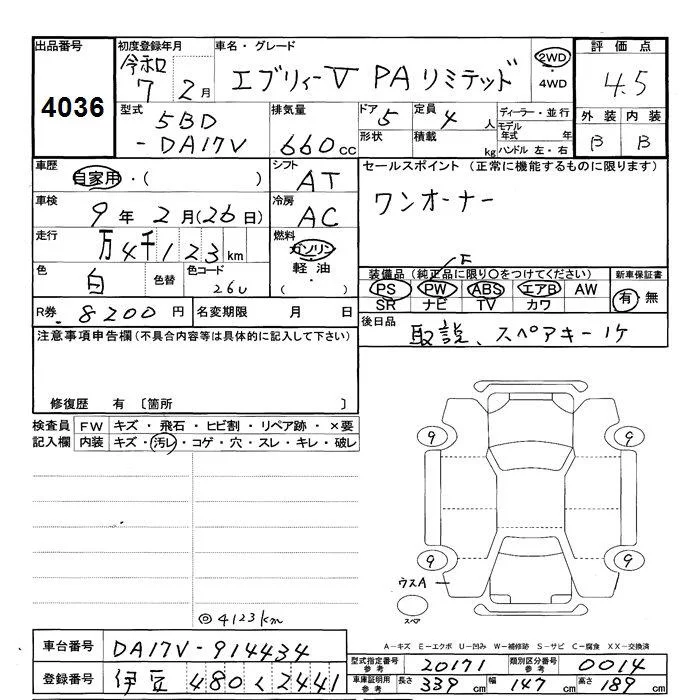 出品番号 初度登録年月 車名・グレード 評価点
4036 令和 7 2月 エブリィーV PAリミテッド 2WD ・ 4WD 4.5
外装 内装
B B
型式 排気量 ドア 定員 ディーラー・並行
5BD -DA17V 660cc 5 4人 モデル 年式 年
形状 積載 kg ハンドル 左・右
車歴 自家用・( ) シフト AT セールスポイント (正常に機能するものに限ります)
車検 9年2月(26日) 冷房 AC ワンオーナー
走行 万4千123km 燃料 ガソリン 軽油 ・( )
色 白 色替 色コード 26U
装備品 (純正品に限り○をつけてください) 新車保証書
F
PS PW ABS エアB AW 有・無
SR ナビ TV カワ
R券 8200円 名変期限 月 日
後日品 取説、スペアキー1ケ
注意事項申告欄(不具合内容等は具体的に記入して下さい)
修復歴 有〔箇所 〕
検査員 FW キズ・飛石・ヒビ割・リペア跡・×要
記入欄 内装 キズ・汚レ・コゲ・穴・スレ・キレ・破レ
9 9
9 9
ウスA
スペア
◎4123km
A−キズ E−エクボ U−凹み W−補修跡 S−サビ C−腐食 XX−交換済
車台番号 DA17V-914434
型式指定番号 参考 20171 類別区分番号 参考 0014
登録番号 伊豆 480 く 2441
車庫証明用 参考 長さ 339cm 幅 147cm 高さ 189cm